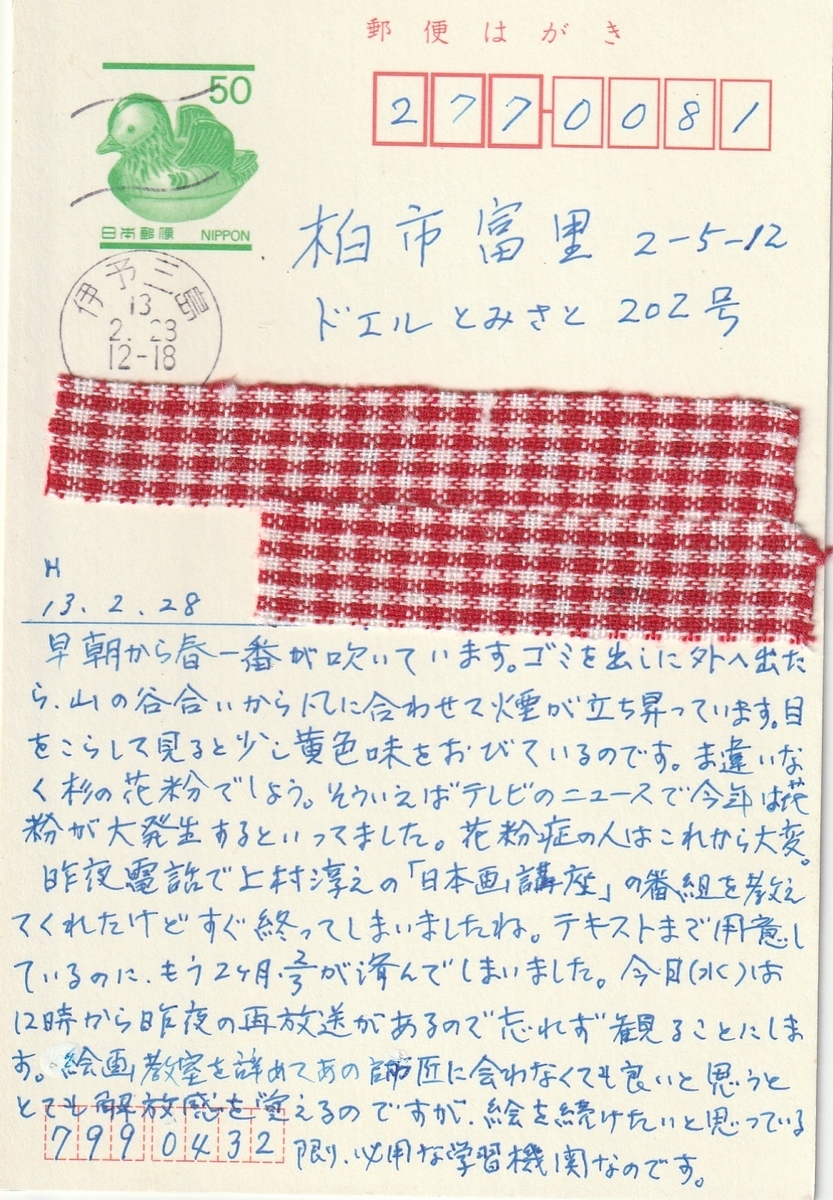 郵便はがき
50
日本郵便 NIPPON
277-0081
柏市富里 2-5-12
ドエルとみさと 202号
伊予三島
13
2.23
12-18
H
13.2.28
早朝から春一番が吹いています。ゴミを出しに外へ出た
ら、山の谷合いから風に合わせて煙が立ち昇っています。目
をこらして見ると少し黄色味をおびているのです。ま違いな
く杉の花粉でしょう。そういえばテレビのニュースで今年は花
粉が大発生するといってました。花粉症の人はこれから大変。
昨夜電話で上村淳之の「日本画講座」の番組を教え
てくれたけどすぐ終ってしまいましたね。テキストまで用意し
ているのに、もう2ヶ月2/3が済んでしまいました。今日(水)は
12時から昨夜の再放送があるので忘れず観ることにしま
す。絵画教室を辞めてあの師匠に会わなくても良いと思うと
とても解放感を覚えるのですが、絵を続けたいと思っている
限り、必用な学習機関なのです。
7990432